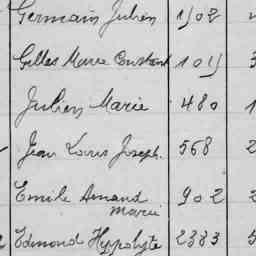 Germain Julien 1902
Gilles Marie Constant 109
Julien Marie 480 1
Jean Louis Joseph. 568 2
Emile Armand 902 2
Marie
Edmond Hyppolyte 2383 5